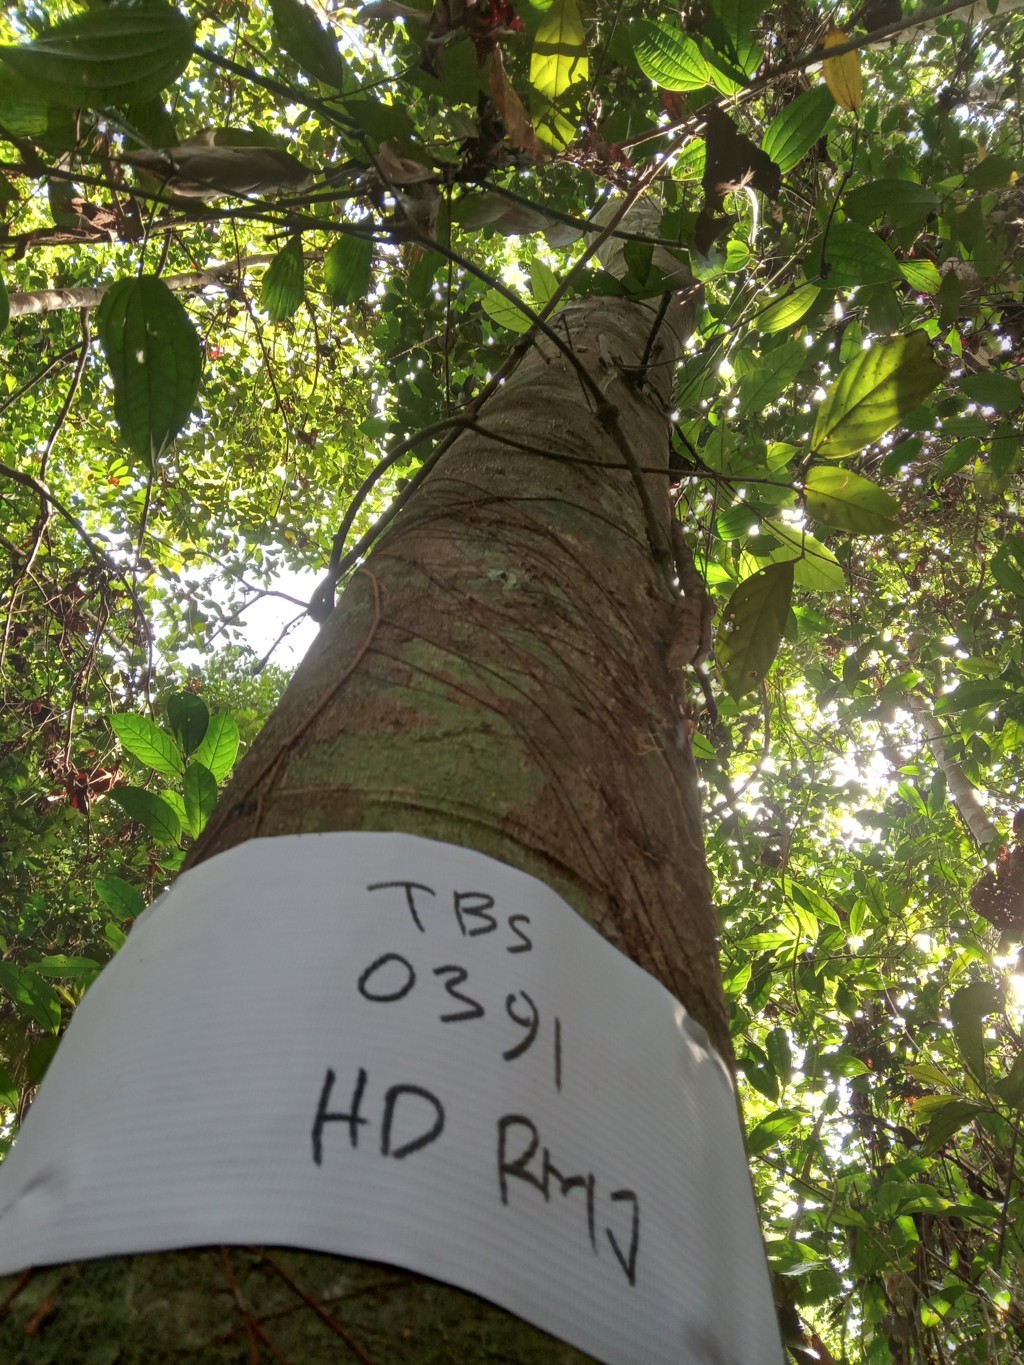 TBS
0391
HD Rmj